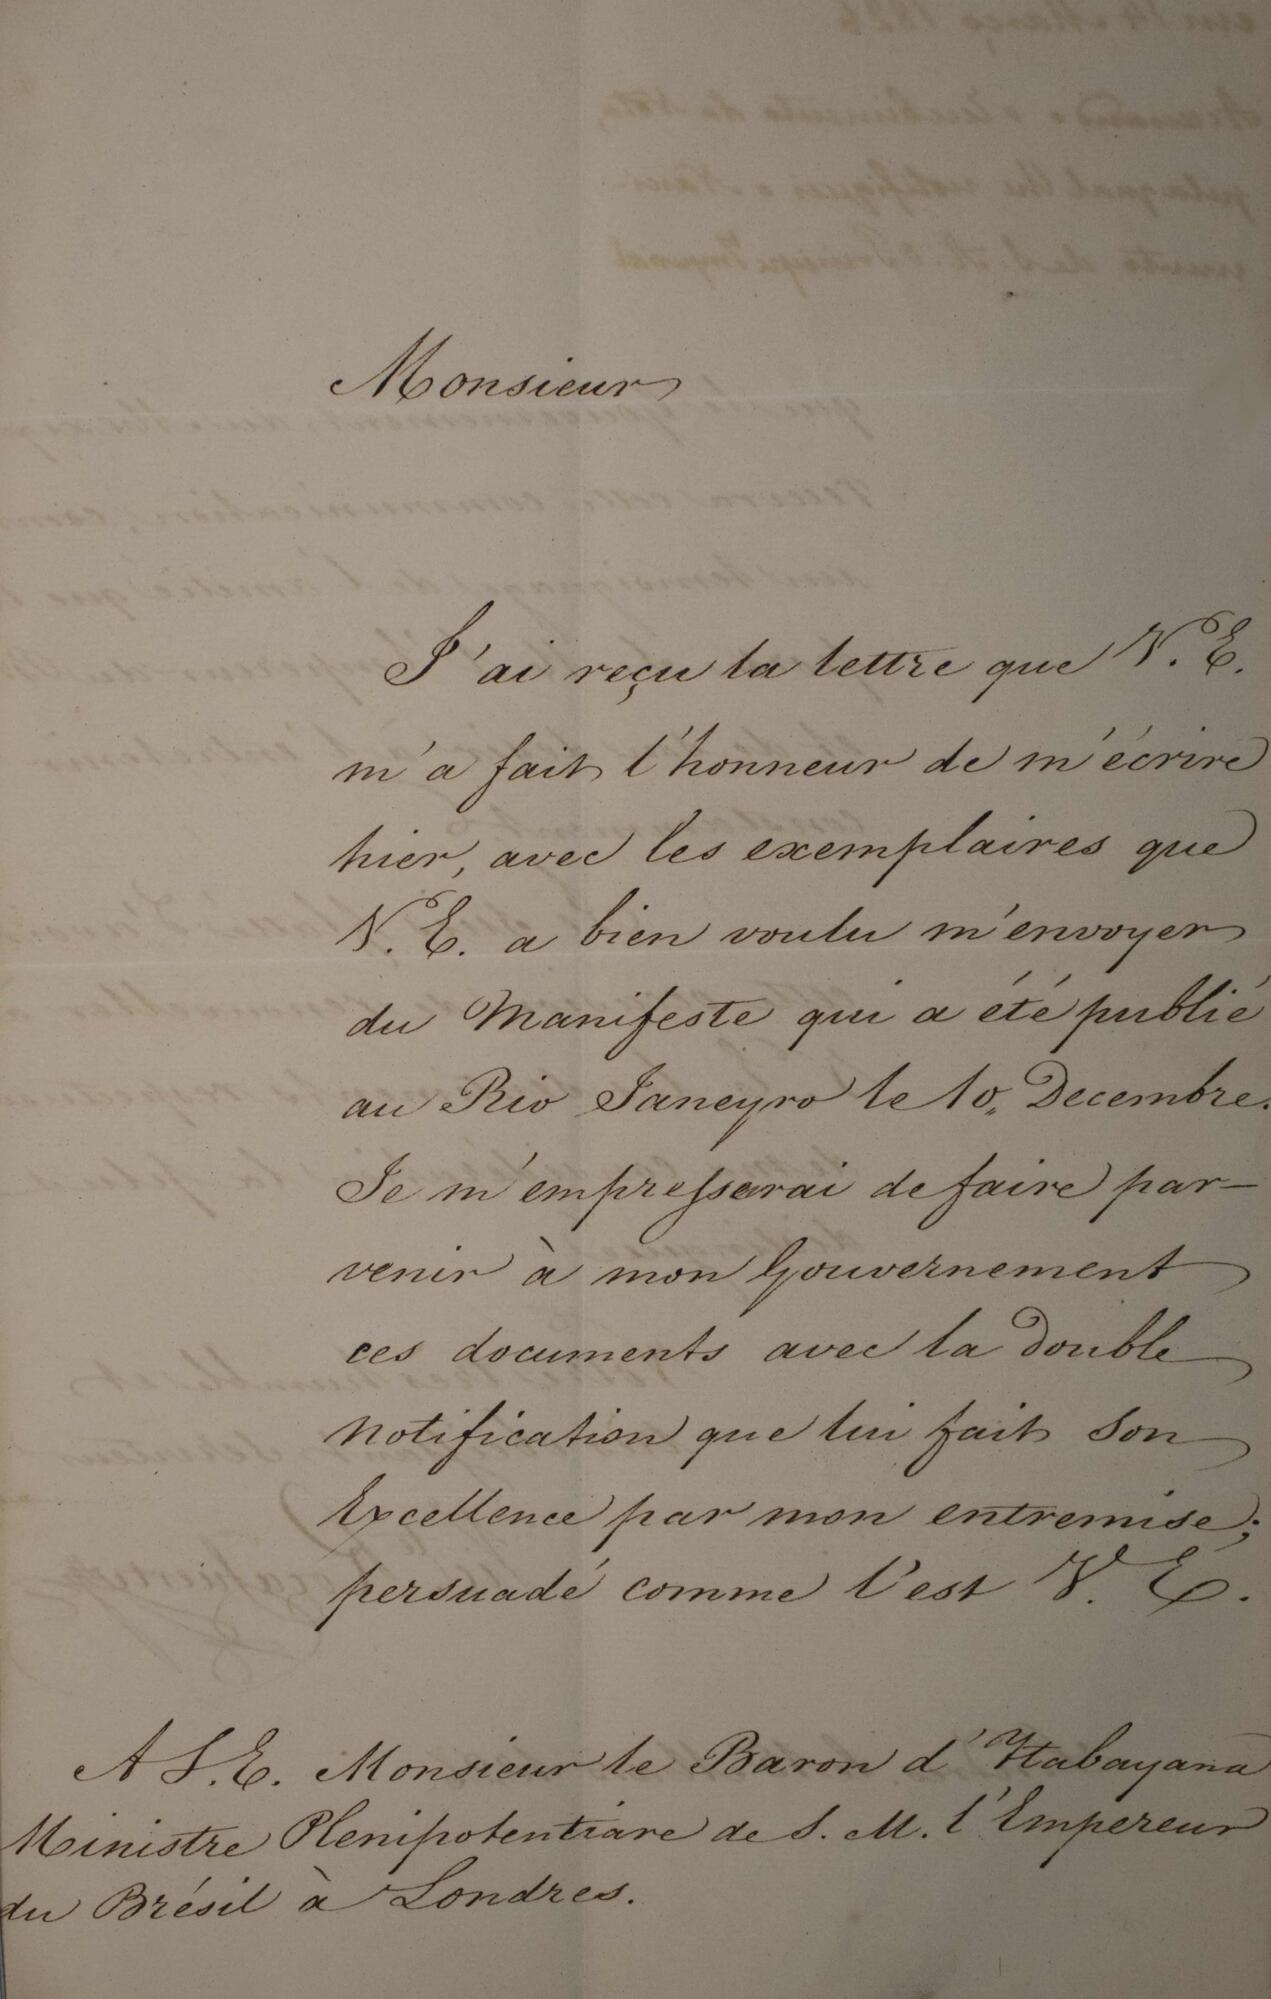 Monsieur
J'ai reçu la lettre que V. E.
m'a fait l'honneur de m'écrire
hier, avec les exemplaires que
V. E. a bien voulu m'envoyer
du Manifeste qui a été publié
au Rio Janeyro le 10 Decembre.
Je m'empresserai de faire par-
venir à mon Gouvernement
ces documents avec la double
notification que lui fait Son
Excellence par mon entremise;
persuadé comme l'est V. E.
A S. E. Monsieur le Baron d'Itabayana
Ministre Plenipotentiare de S. M. l'Empereur
du Brésil à Londres.